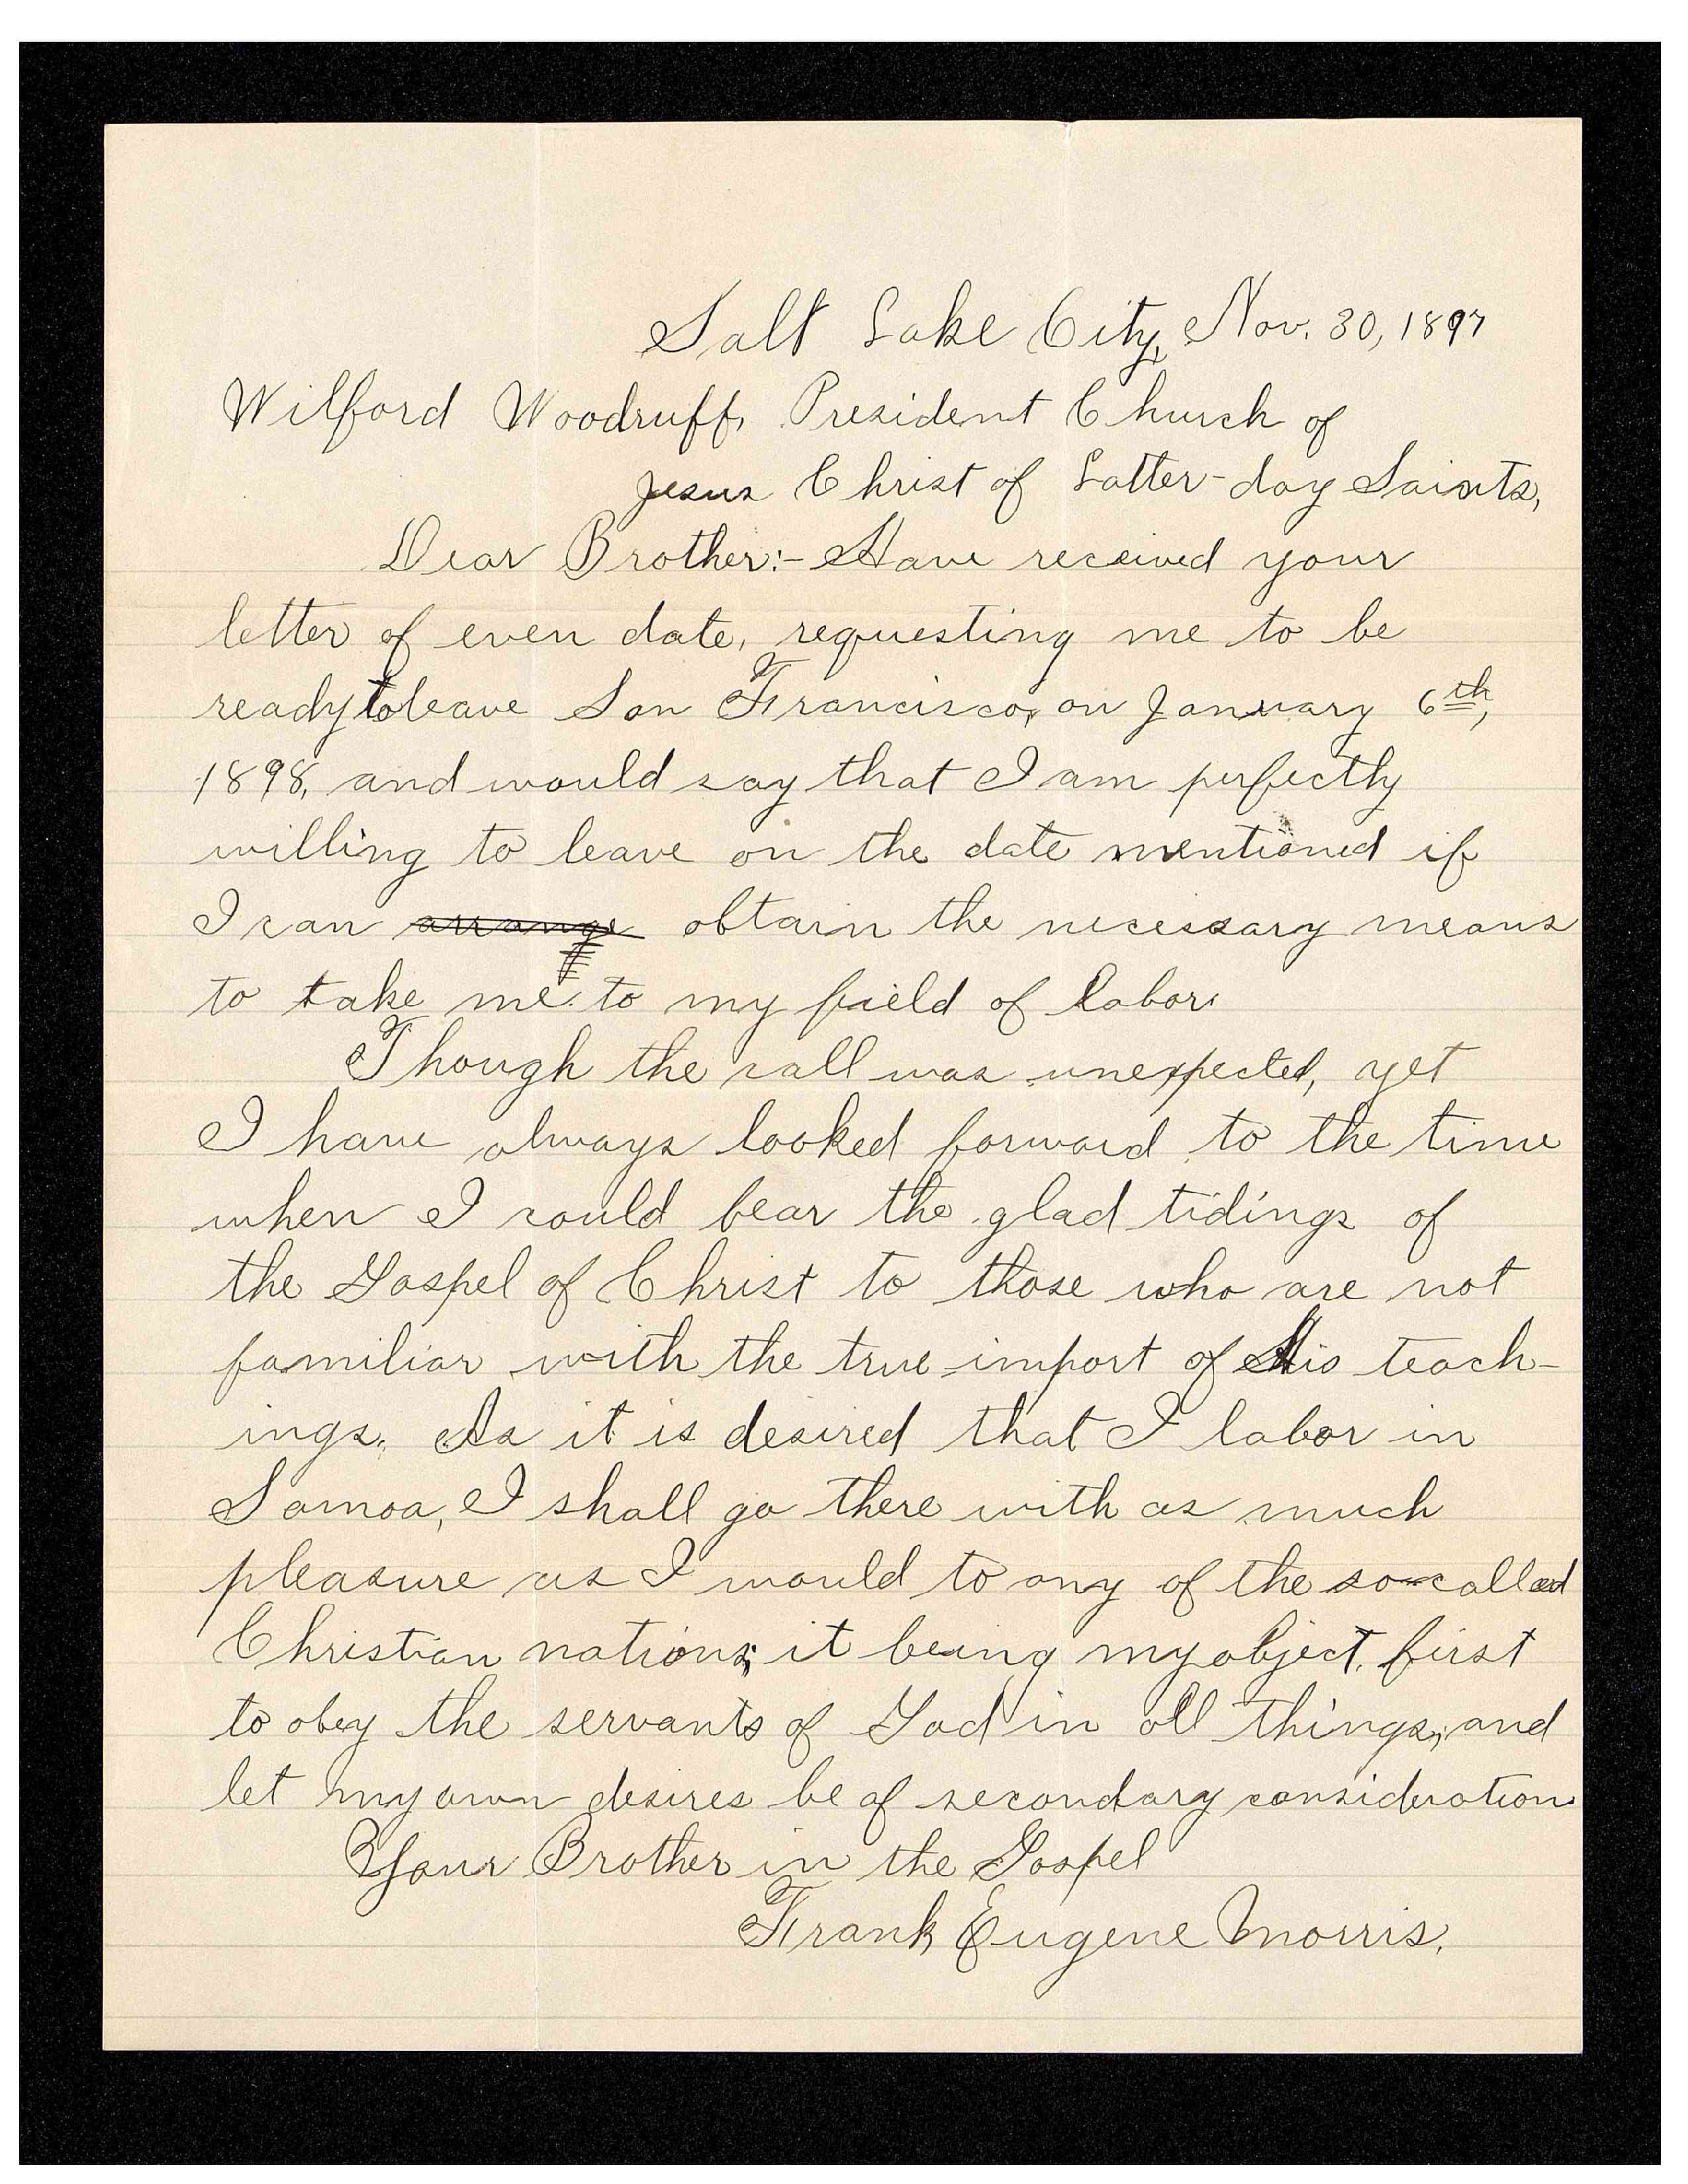 Salt Lake City, Nov. 30, 1897
Wilford Woodruff, President Church of
Jesus Christ of Latter-day Saints,
Dear Brother:- Have received your
letter of even date, requesting me to be
ready to leave San Francisco, on January 6th,
1898, and would say that I am perfectly
willing to leave on the date mentioned if
I can arrange obtain the necessary means
to take me to my field of labor.
Though the call was unexpected, yet
I have always looked forward to the time
when I could bear the glad tidings of
the Gospel of Christ to those who are not
familiar with the true import of His teach-
ings. As it is desired that I labor in
Samoa, I shall go there with as much
pleasure as I would to any of the so-called
Christian nations; it being my object, first
to obey the servants of God in all things, and
let my own desires be of secondary consideration.
Your Brother in the Gospel
Frank Eugene Morris.